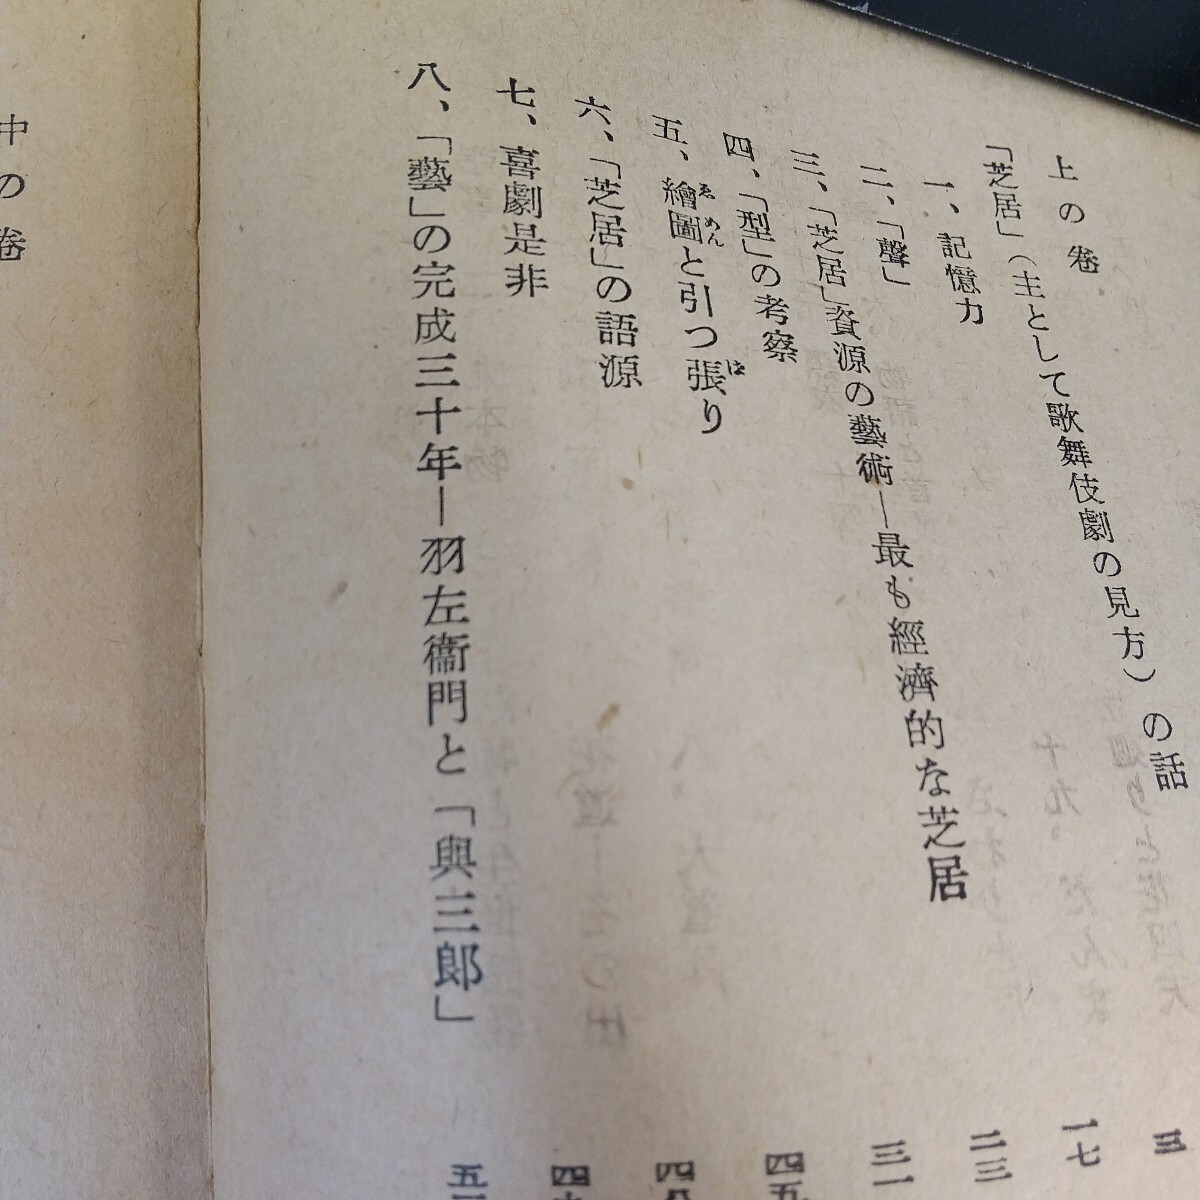 上の卷
「芝居」(主として歌舞伎劇の見方)の話
一、記憶力
二、「聲」
三、「芝居」資源の藝術―最も經濟的な芝居
四、「型」の考察
五、繪圖と引つ張り
ゑめん
は
六、「芝居」の語源
七、喜劇是非
八、「藝」の完成三十年―羽左衞門と「與三郎」
三
一七
二三
三一
四五
中の卷